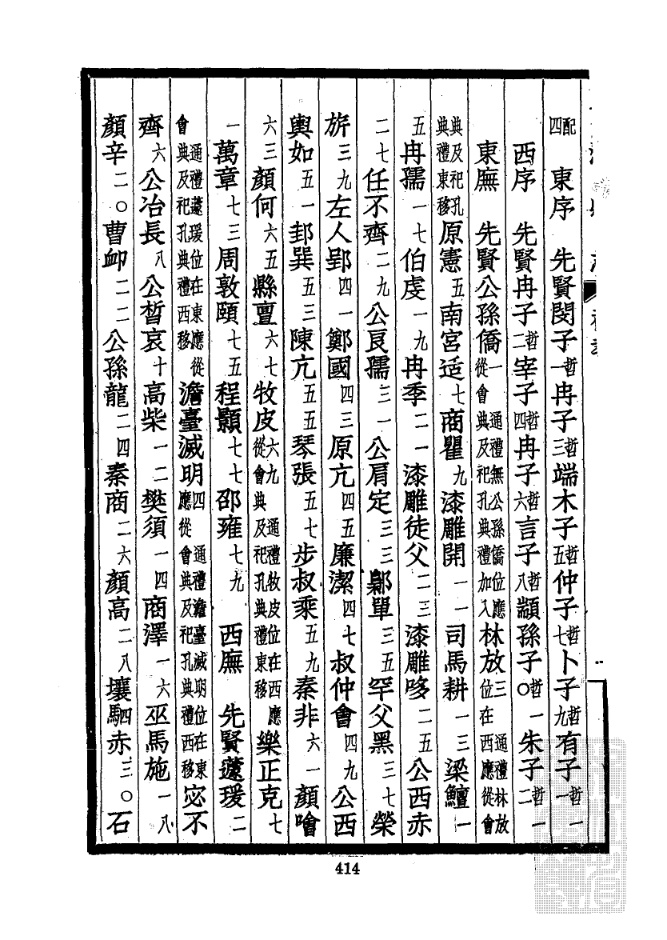 配四　東序　先賢閔子哲一冉子哲三端木子哲五仲子哲七卜子哲九有子哲一一
西序　先賢冉子哲二宰子哲四冉子哲六言子哲八顓孫子哲一〇朱子哲一二
東廡　先賢公孫僑一通禮無公孫僑位應從會典及祀孔典禮加入林放三通禮林放位在西應從會
典及祀孔典禮東移原憲五南宮适七商瞿九漆雕開一一司馬耕一三梁鱣一
五冉孺一七伯虔一九冉季二一漆雕徒父二三漆雕哆二五公西赤
二七任不齊二九公良孺三一公肩定三三鄡單三五罕父黑三七榮
旂三九左人郢四一鄭國四三原亢四五廉潔四七叔仲會四九公西
輿如五一邽巽五三陳亢五五琴張五七步叔乘五九秦非六一顏噲
六三顏何六五縣亶六七牧皮六九通禮牧皮位在西應從會典及祀孔典禮東移樂正克七
一萬章七三周敦頤七五程顥七七邵雍七九　西廡　先賢蘧瑗二
通禮蘧瑗位在東應從會典及祀孔典禮西移澹臺滅明四通禮澹臺滅明位在東應從會典及祀孔典禮西移宓不
齊六公冶長八公晳哀十高柴一二樊須一四商澤一六巫馬施一八
顏辛二〇曹卹二二公孫龍二四秦商二六顏高二八壤駟赤三〇石
414